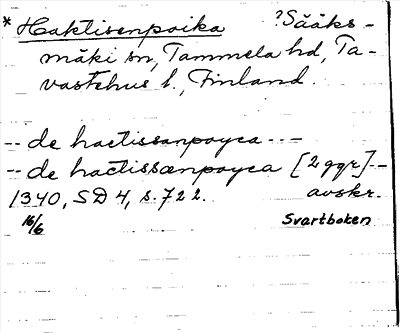 * Haktisenpoika ?Sääks-
mäki sn, Tammela hd, Ta-
vastehus l., Finland.
-- de hactissanpoyca ---
-- de hactissænpoyca [2 ggr] --
1340, SD 4, s. 722. avskr.
16/6 Svartboken